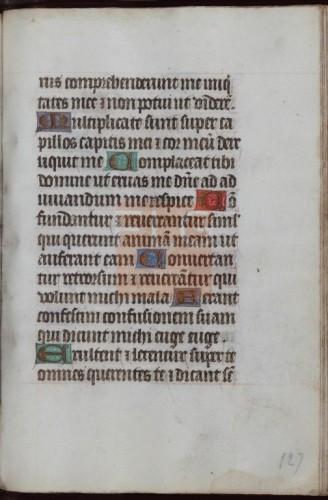 nis comprehenderunt me iniq̄
tates mee ⁊ non potui ut viderē.
Multiplicate sunt super ca
pillos capitis mei ⁊ cor meū dere
liquit me Complaceat tibi
domine ut eruas me dn̄e ad ad
iuuandum me respice Cō
fundantur ⁊ reuereantur simł
qui querunt animā meam ut
auferant eam Conuertan
tur retrorsum ⁊ reuereātur qui
volunt michi mala Ferant
confestim confusionem suam
qui dicunt michi euge euge.
Exultent ⁊ letentur super te
omnes querentes te ⁊ dicant sē
127